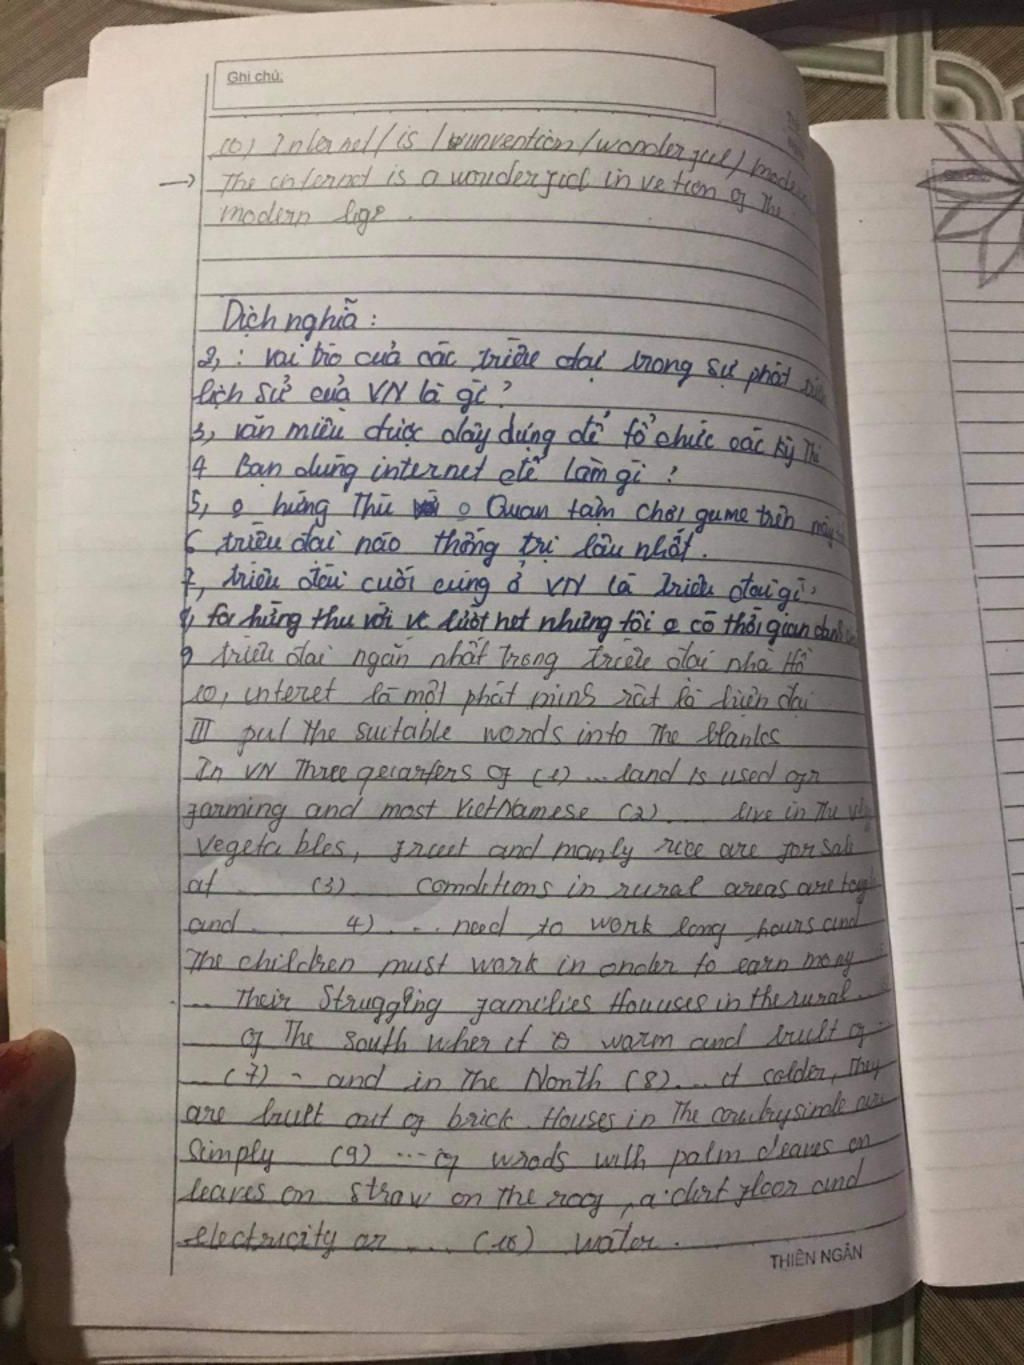 Ghi chú:
10) Internet / is / invention / wonderful / modern
→ The internet is a wonderful invetion of the
modern life.
Dịch nghĩa :
2, : vai trò cuả các triều đại trong sự phát
lịch sử của VN là gì ?
3, văn miếu được dây dựng để tổ chức các kỳ thi
4 Bạn dùng internet để làm gì ?
5, o hứng Thú o Quan tâm chơi game trên máy
6 triều đại nào thống trị lâu nhất.
7, triều đại cuối cùng ở VN là triều đại gì ?
8, hứng thu với lướt net nhưng tôi o có thời gian dành
9 triều đại ngắn nhất Trong triều đại nhà Hồ
10, interet là một phát minh rất là hiện đại
III put the suitable words into The blanks
In VN Three quarters of (1) ... land is used for
farming and most VietNamese (2) .... live in The
vegetables, fruit and manly rice are for sale
at .... (3) .... conditions in rural areas are
and .... 4) .... need to work long hours and
The children must work in order to earn
... Their struggling families Houuses in the rural
of The south wher it is warm and built of
... (7) - and in The North (8) ... it colder, They
are built out of brick. Houses in The are
simply (9) ... of woods with palm leaves on
leaves on straw on The roof, a dirt floor and
electricity or .... (10) water.
THIÊN NGÂN